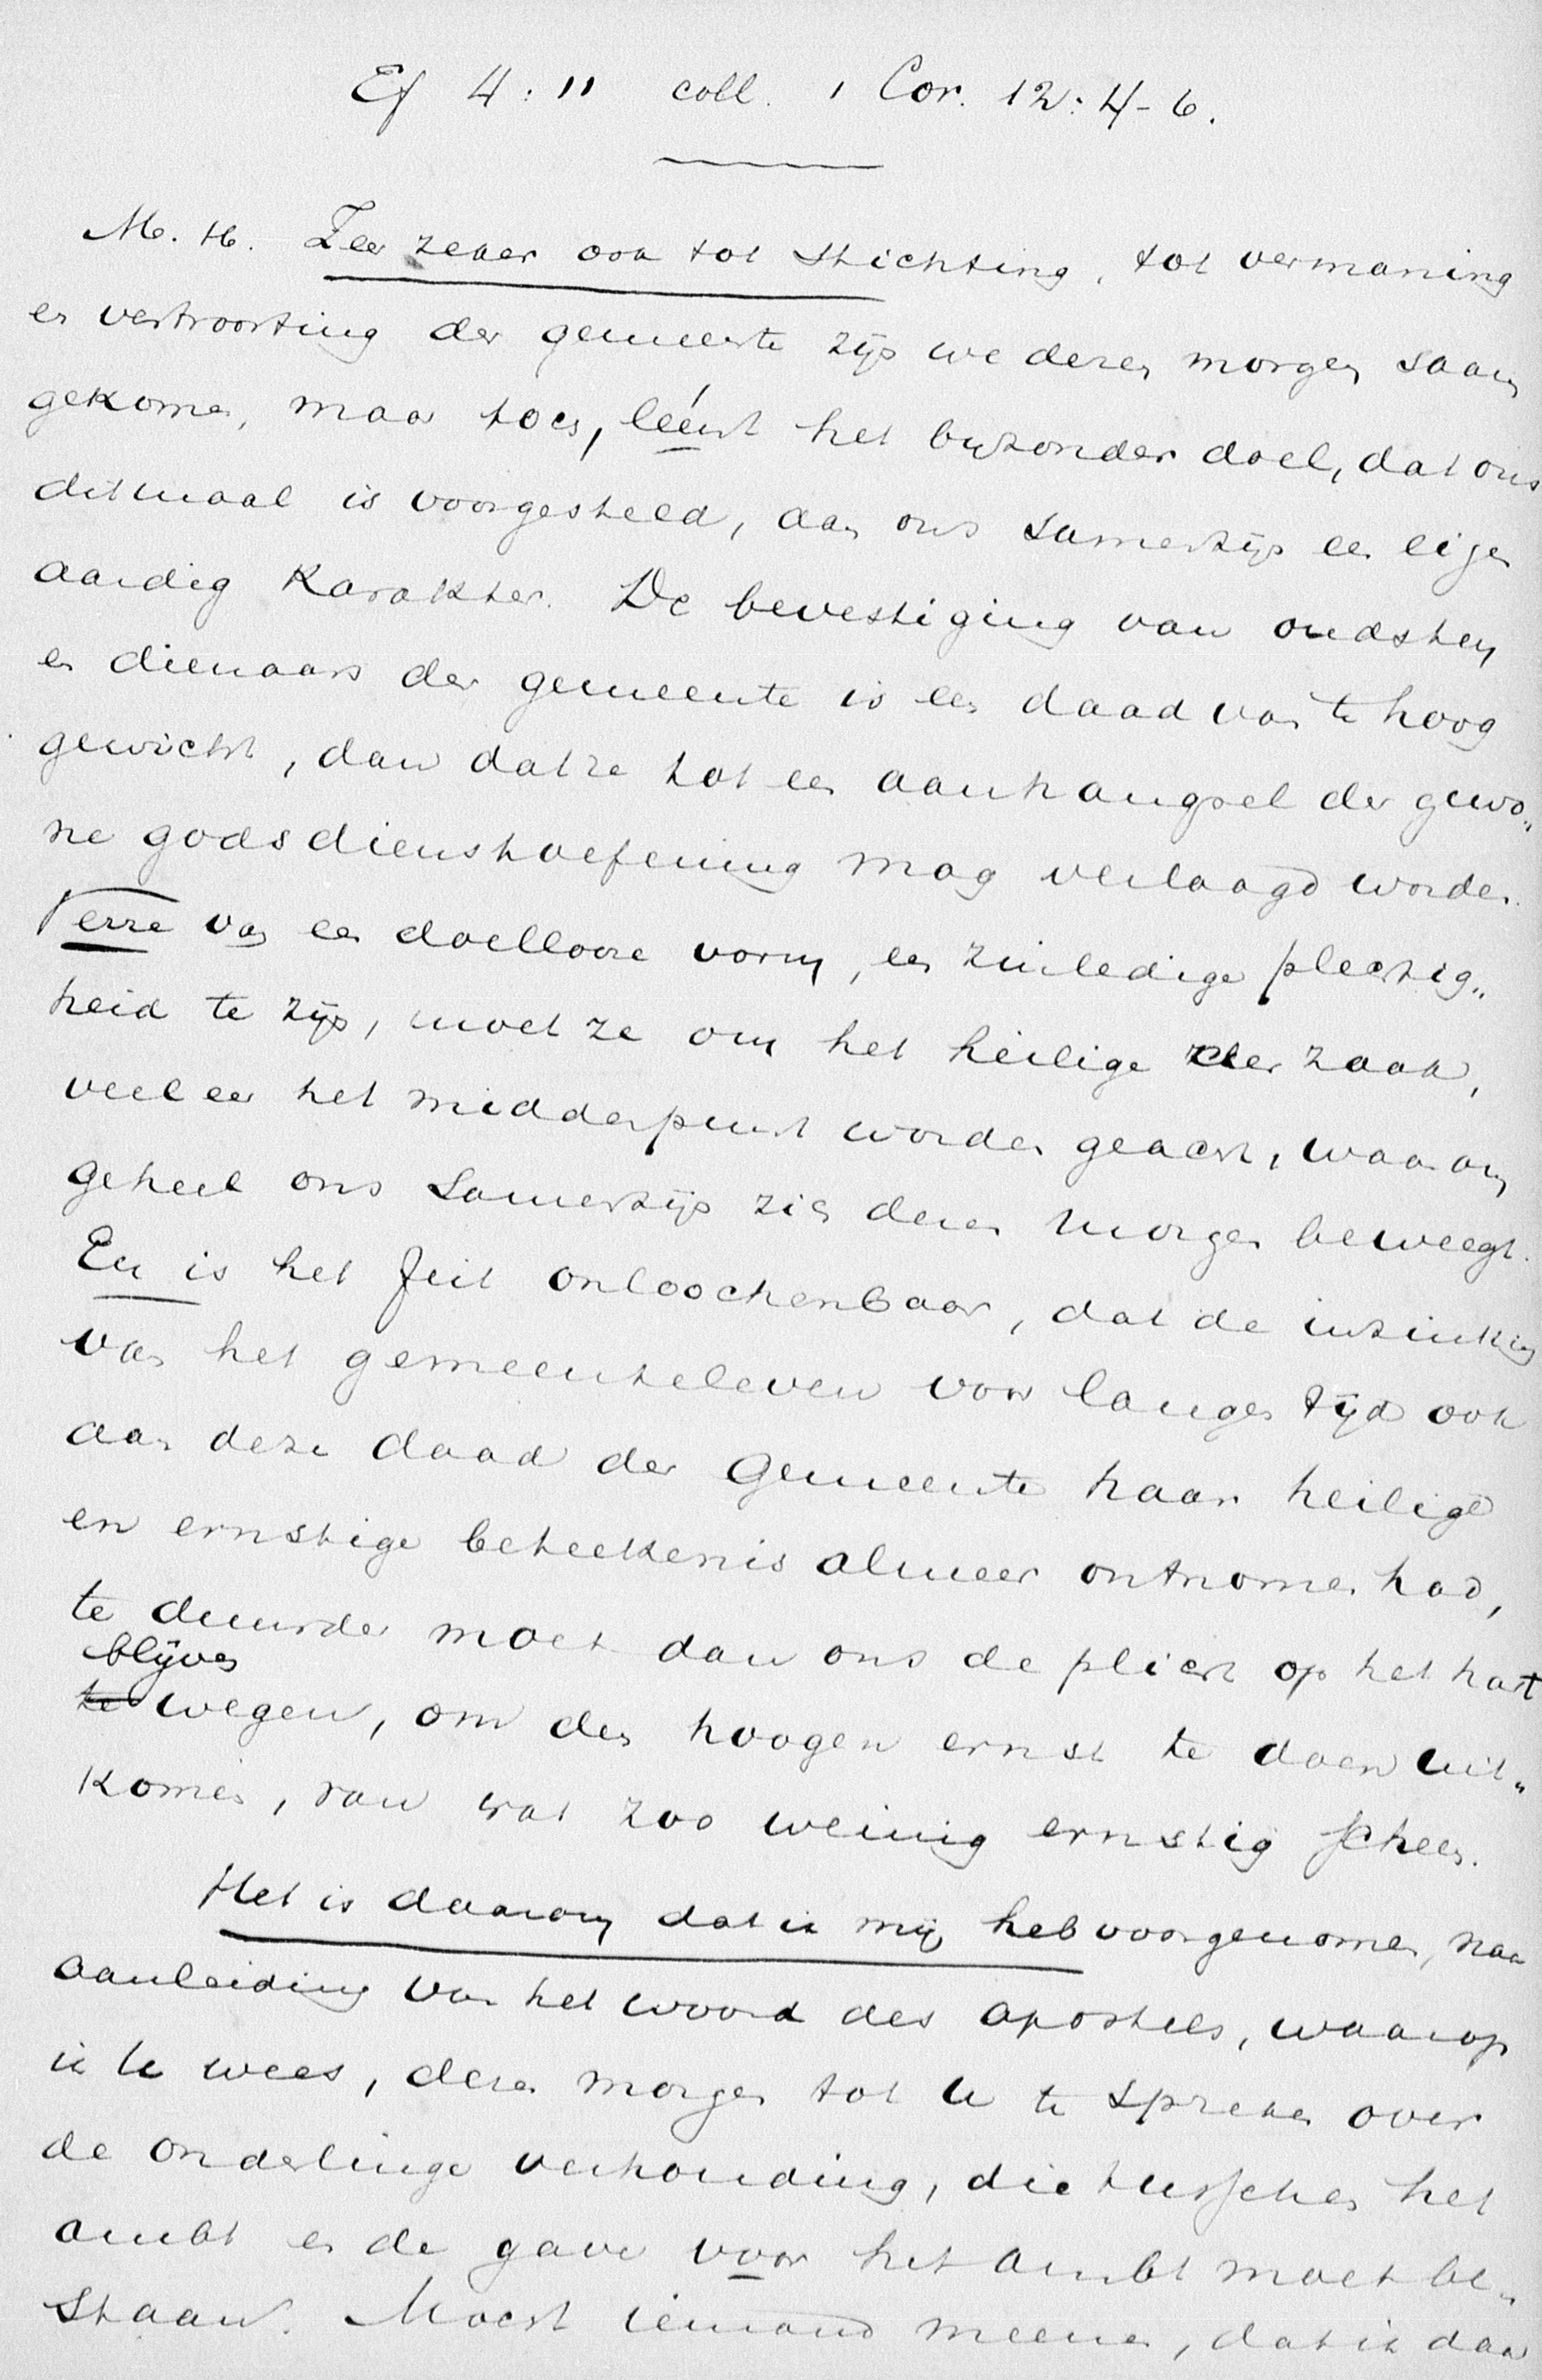 Ef 4:11 coll. 1 Cor. 12:4-6.
M. H. Zeer zeker ook tot stichting, tot vermaning
en vertroosting der gemeente zijn we dezen morgen saam
gekomen, maar toch, léént het byzonder doel, dat ons
ditmaal is voorgesteld, aan ons samenzijn een eigen
aardig karakter. De bevestiging van oudsten
en dienaars der gemeente is een daad van te hoog
gewicht, dan dat ze tot een aanhangsel der gewo„
ne godsdienstoefening mag verlaagd worden.
Verre van een doellooze vorm, een zinledige plechtig„
heid te zijn, moet ze om het heilige der zaak,
veeleer het middenpunt worden geacht, waarom
geheel ons samenzijn zich dezen morgen beweegt.
En is het feit onloochenbaar, dat de inzinking
van het gemeenteleven voor langen tijd ook
aan deze daad der Gemeente haar heilige
en ernstige beteekenis almeer ontnomen had,
te duurder moet dan ons de plicht op het hart
blijven
te wegen, om den hoogen ernst te doen uit„
komen, van wat zoo weinig ernstig scheen.
Het is daarom dat ik mij heb voorgenomen, naar
aanleiding van het woord des apostels, waarop
ik U wees, dezen morgen tot U te spreken over
de onderlinge verhouding, die tusschen het
ambt en de gave voor het ambt moet be„
staan. Mocht iemand meenen, dat ik daar